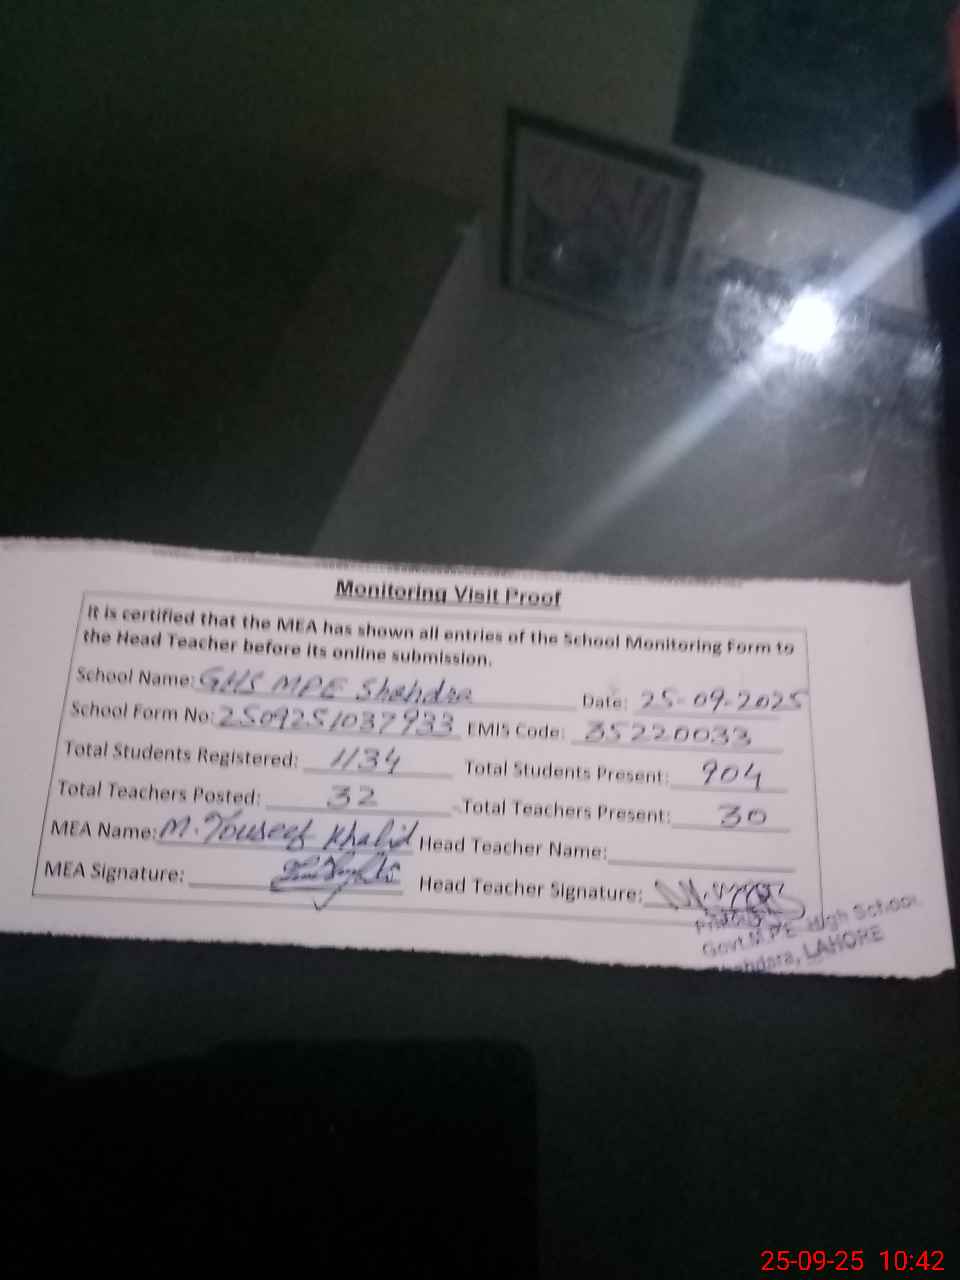 Monitoring Visit Proof
It is certified that the MEA has shown all entries of the School Monitoring Form to
the Head Teacher before its online submission.
School Name: GHS MPE Shahdra Date: 25-09-2025
School Form No: 2509251037933 EMIS Code: 35220033
Total Students Registered: 1134 Total Students Present: 904
Total Teachers Posted: 32 Total Teachers Present: 30
MEA Name: M. Youseef Khalid Head Teacher Name:
MEA Signature: Head Teacher Signature:
Govt. M.P.E High School
Shahdara, LAHORE
25-09-25 10:42